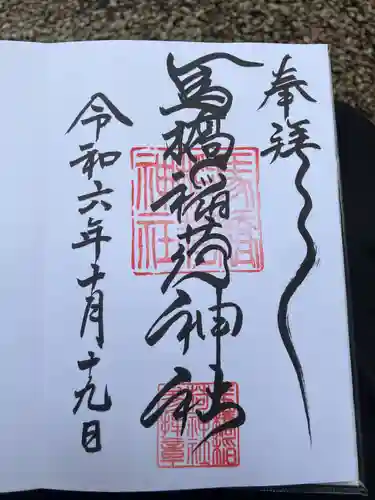 奉拝
馬橋稲荷神社
令和六年十月十九日